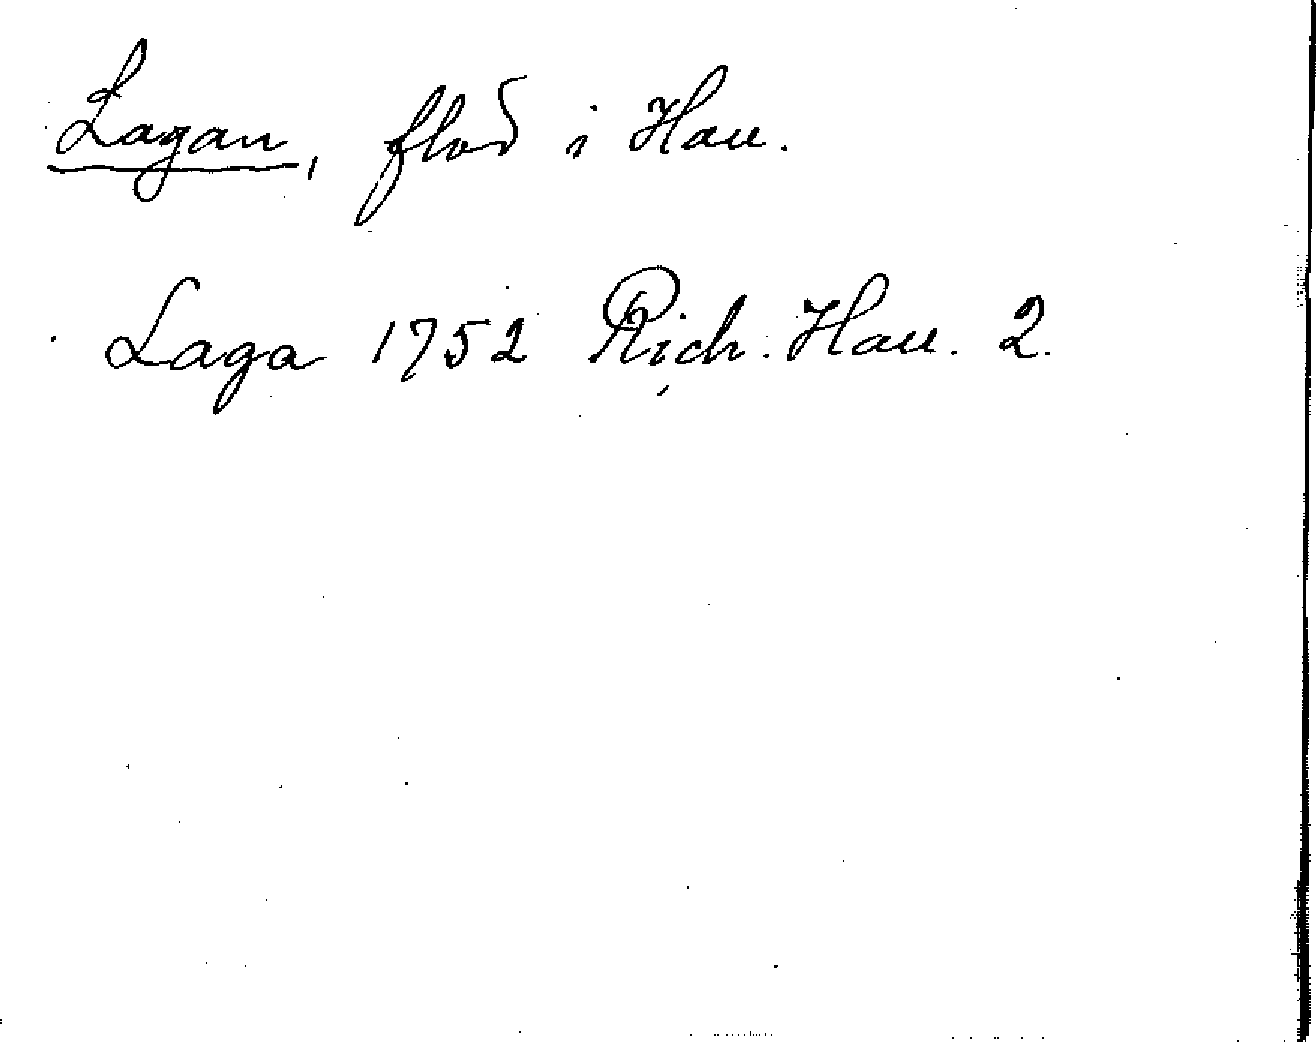 Lagan, flod i Hall.
Laga 1752 Rich. Hall. 2.